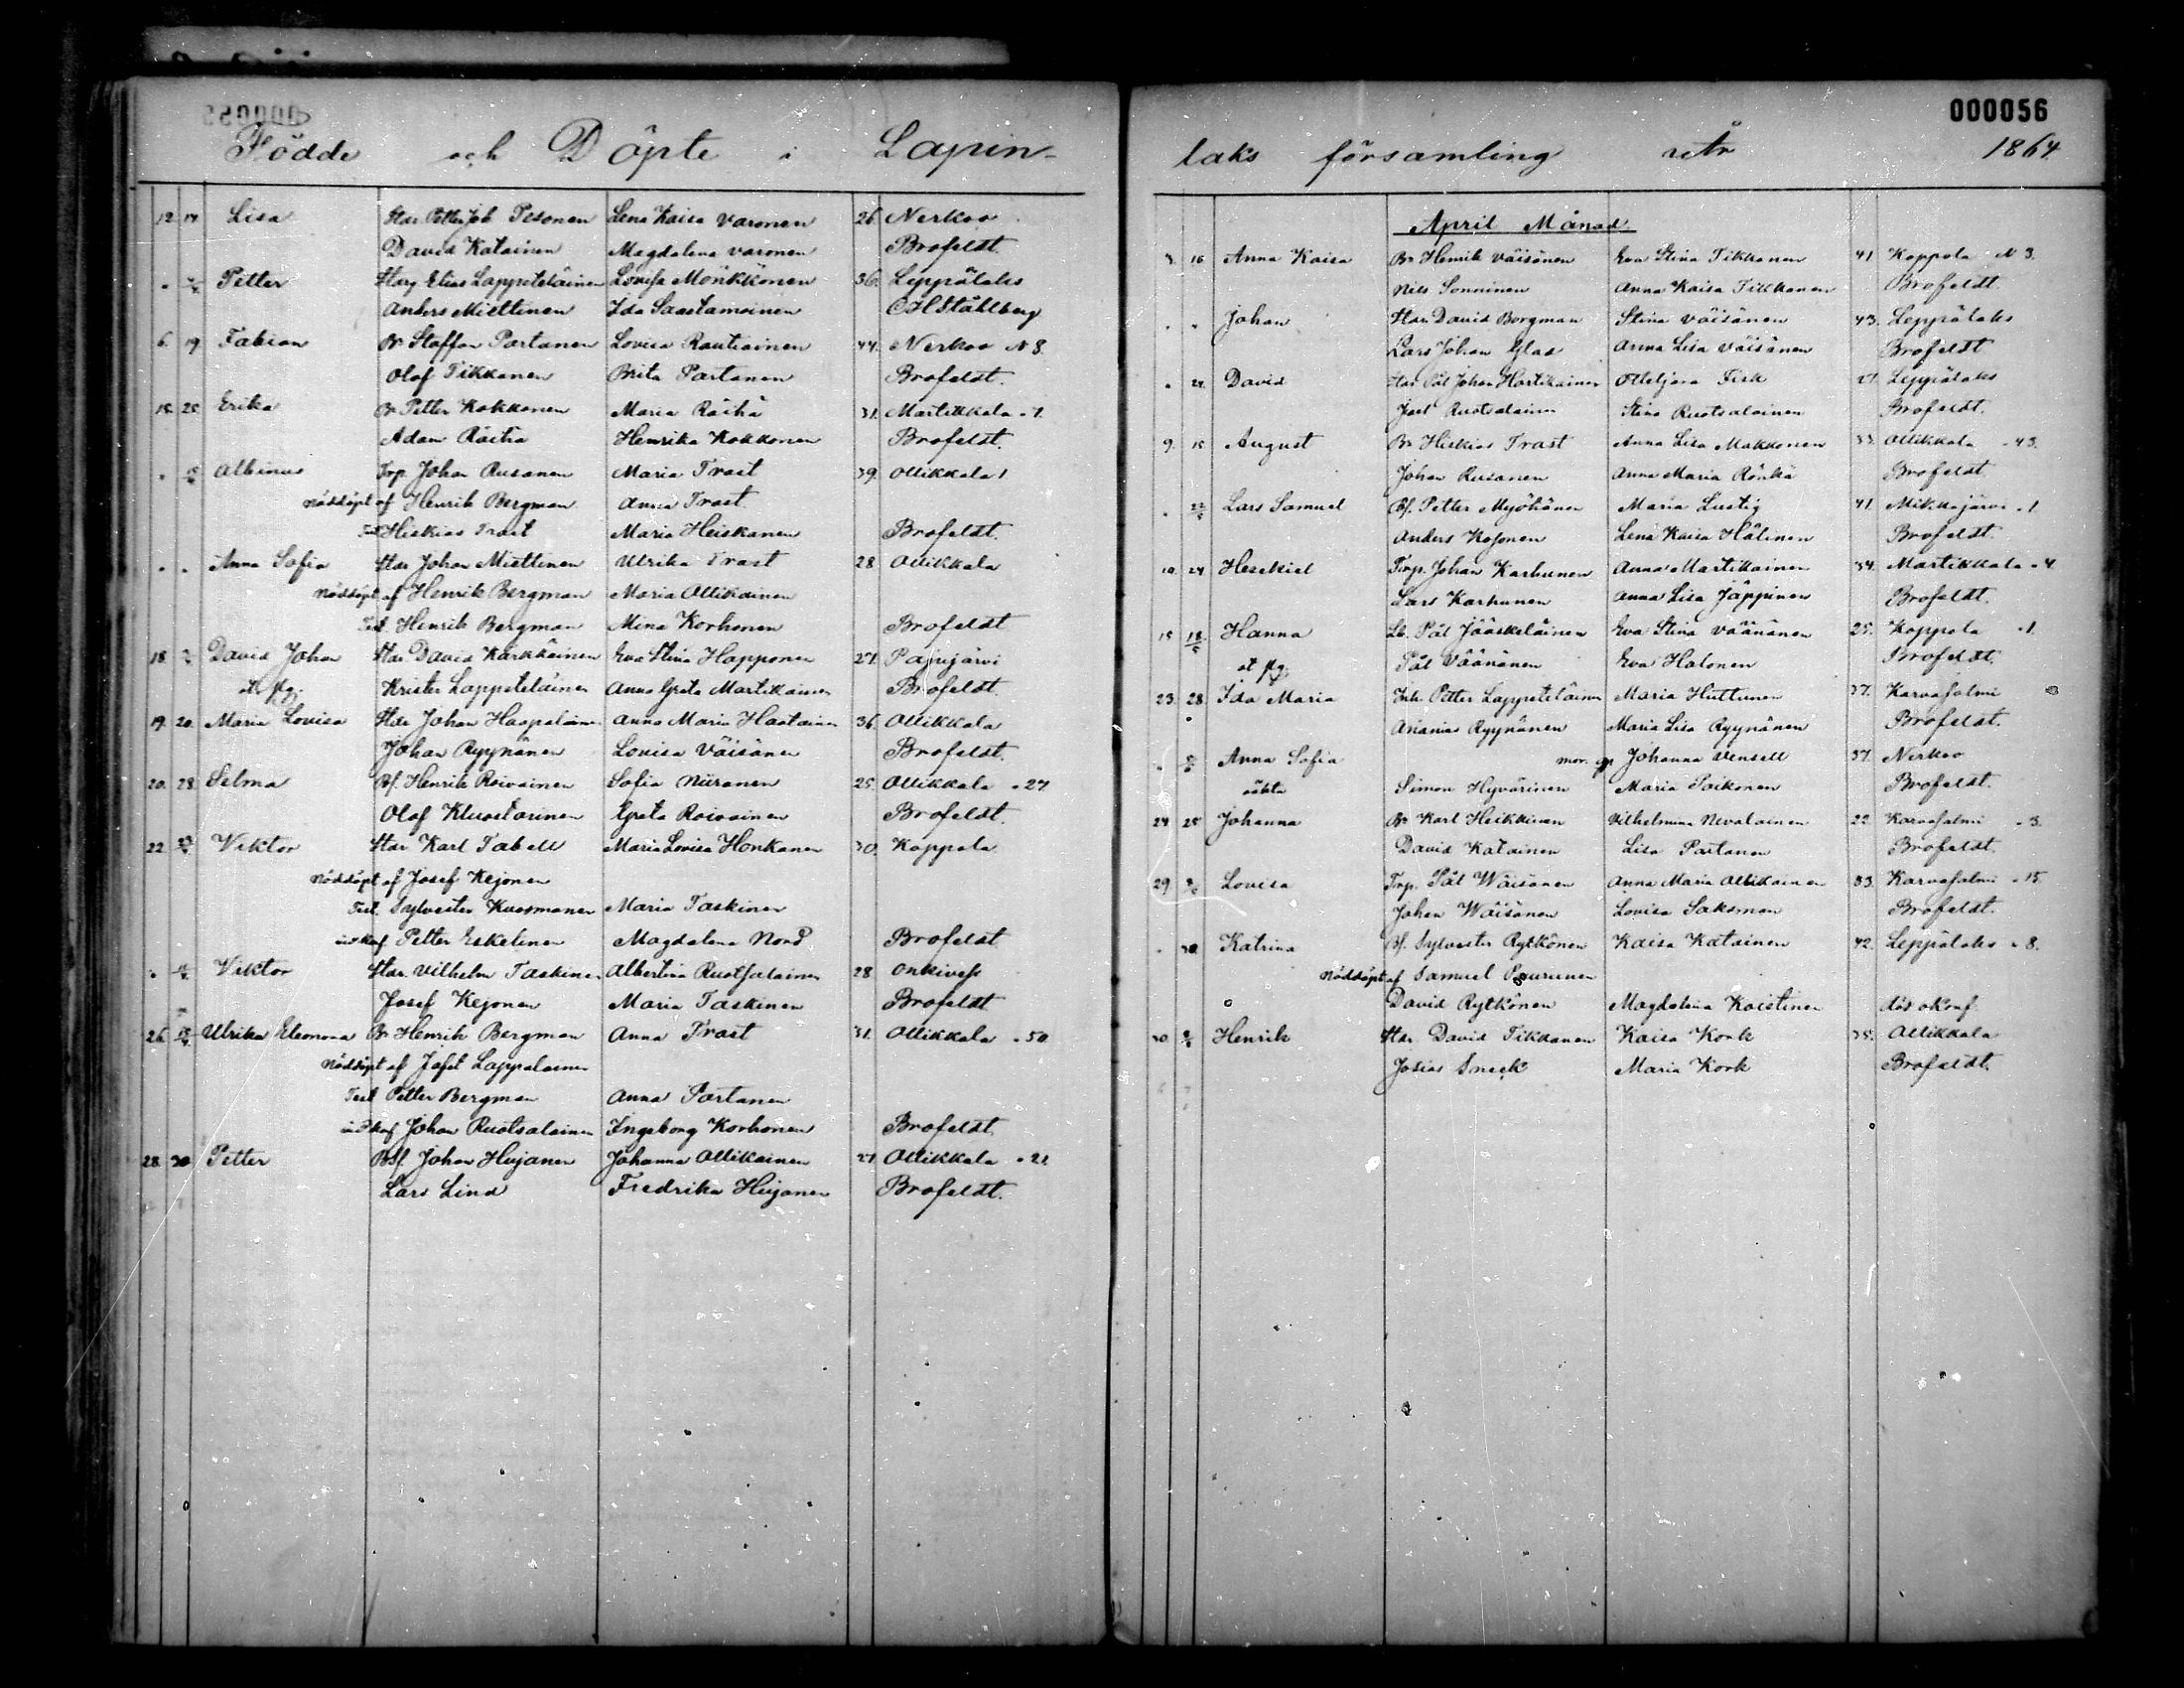 000056
Födde och Döpte i Lapin-
12. 14 Lisa Stat. Petter Joh Pesonen Lena Kaisa Varonen 26. Nerkoo
David Katainen Magdalena Varonen Brofeldt.
Petter Elias Lappeteläinen Lovisa Mönkkönen 36. Leppälaks
Anders Miettinen Ida Saastamoinen Ståhlberg
6. 19 Fabian Br Staffan Partanen Lovisa Rautiainen 44. Nerkoo N 8.
Olof Tikkanen Brita Partanen Brofeldt.
15. 25. Erika Br Petter Kokkonen Maria Räihä 31. Martikkala
Adam Räihä Henrika Kokkonen Brofeldt.
Albinus Trp. Johan Rusanen Maria Trast 39. Ollikkala 1
Nöddöpt af Henrik Bergman Anna Trast.
Test Hiskias Trast Maria Heiskanen Brofeldt.
" " Anna Sofia Johan Miettinen Ulrika Trast 28 Ollikkala
Nöddöpt af Henrik Bergman Maria Ollikainen
Test. Henrik Bergman Mina Korhonen Brofeldt
18. David Johan David Kärkkäinen Eva Stina Happonen 27. Pajujärvi
Krister Lappeteläinen Anna Greta Martikainen Brofeldt.
19. 20. Maria Lovisa Johan Haapalainen Anna Maria Haatainen 36. Ollikkala
Johan Ryynänen Lovisa Väisänen Brofeldt.
20. 28. Selma Bf. Henrik Roivainen Sofia Niiranen 25. Ollikkala " 27
Olof Kluostarinen Greta Roivainen Brofeldt.
22. Viktor Karl Tabell Maria Lovisa Honkanen 30. Koppola
Nöddöpt af Josef Kejonen
Test. Sylvester Kuosmanen Maria Taskinen
Petter Eskelinen Magdalena Nord Brofeldt
" Viktor Vilhelm Taskinen Albertina Ruotsalainen 28 Onkivesi
Josef Kejonen Maria Taskinen Brofeldt
26. Ulrika Eleonora Br Henrik Bergman Anna Trast 31. Ollikkala " 50
Nöddöpt af Jafet Lappalainen
Test Petter Bergman Anna Partanen
Johan Ruotsalainen Ingeborg Korhonen Brofeldt
28. 30 Petter Bsf. Johan Hujanen Johanna Ollikainen 27. Ollikkala " 21.
Lars Lind Fredrika Hujanen Brofeldt.
laks församling år 1864
April Månad.
3. 16 Anna Kaisa Br Henrik Väisänen Eva Stina Tikkanen 41. Koppola N 3.
Nils Sonninen Anna Kaisa Tikkanen Brofeldt
" " Johan David Borgman Stina Väisänen 43. Leppälaks
Lars Johan Glad Anna Lisa Väisänen Brofeldt
" 24. David Pål Johan Hartikainen Otteljana Fisk 27. Leppälaks
Joel Ruotsalainen Stina Ruotsalainen Brofeldt.
9. 15 August Br Hiskias Trast Anna Lisa Makkonen Ollikkala " 43.
Johan Rusanen Anna Maria Rönkä Brofeldt
" Lars Samuel Bf. Petter Myöhänen Maria Lustig 41. Mikkajärvi " 1
Anders Kosonen Lena Kaisa Hälinen Brofeldt.
10. 24 Hesekiel Trp. Johan Karhunen Anna Martikainen 34. Martikkala " 4.
Lars Karhunen Anna Lisa Jäppinen Brofeldt.
15 Hanna Pål Jääskeläinen Eva Stina Väänänen 25. Koppola " 1.
Pål Väänänen Eva Halonen Brofeldt.
23. 28 Ida Maria Petter Lappeteläinen Maria Huttunen 37. Karvasalmi
Ananias Ryynänen Maria Lisa Ryynänen Brofeldt.
" Anna Sofia Johanna Vensell 37. Nerkoo
oäkta Simon Hyvärinen Maria Poikonen Brofeldt.
24 25 Johanna Br Karl Heikkinen Vilhelmina Nevalainen 22. Karvasalmi " 3.
David Katainen Lisa Partanen Brofeldt.
29. Lovisa Trp. Pål Wäisänen Anna Maria Ollikainen 33. Karvasalmi " 15.
Johan Wäisänen Lovisa Saksman Brofeldt.
" 30. Katrina Bf. Sylvester Rytkönen Kaisa Katainen 42. Leppälaks " 8.
Nöddöpt af Samuel Puurunen
David Rytkönen Magdalena Koistinen
30. Henrik David Tikkanen Kaisa Kork 35. Ollikkala
Josias Sneck Maria Kork Brofeldt.